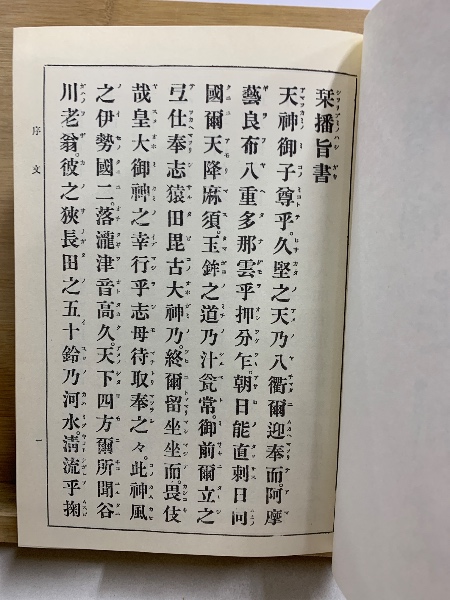 栞播旨書
天神御子尊乎。久堅之天乃八衢爾迎奉而。阿摩
藝良布八重多那雲乎押分乞。朝日能直刺日向
國爾天降麻須。玉鉾之道乃汁箆常。御前爾立之
弖仕奉志猿田毘古大神乃。終爾留坐坐而。畏伎
哉皇大御神之幸行乎志母待取奉之々。此神風
之伊勢國二。落瀧津音高久。天下四方爾所聞谷
川老翁。彼之狹長田之五十鈴乃河水。清流乎掬
序文
一